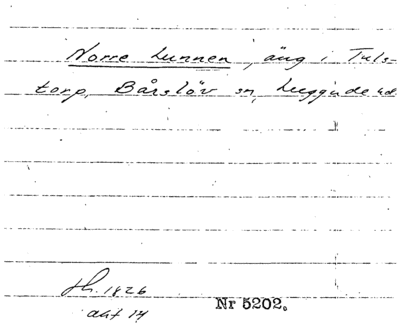 Norre Lunnen, äng i Tuls-
torp, Bårslöv sn, Luggude hd
Sk. 1826
akt 14
Nr 5202.